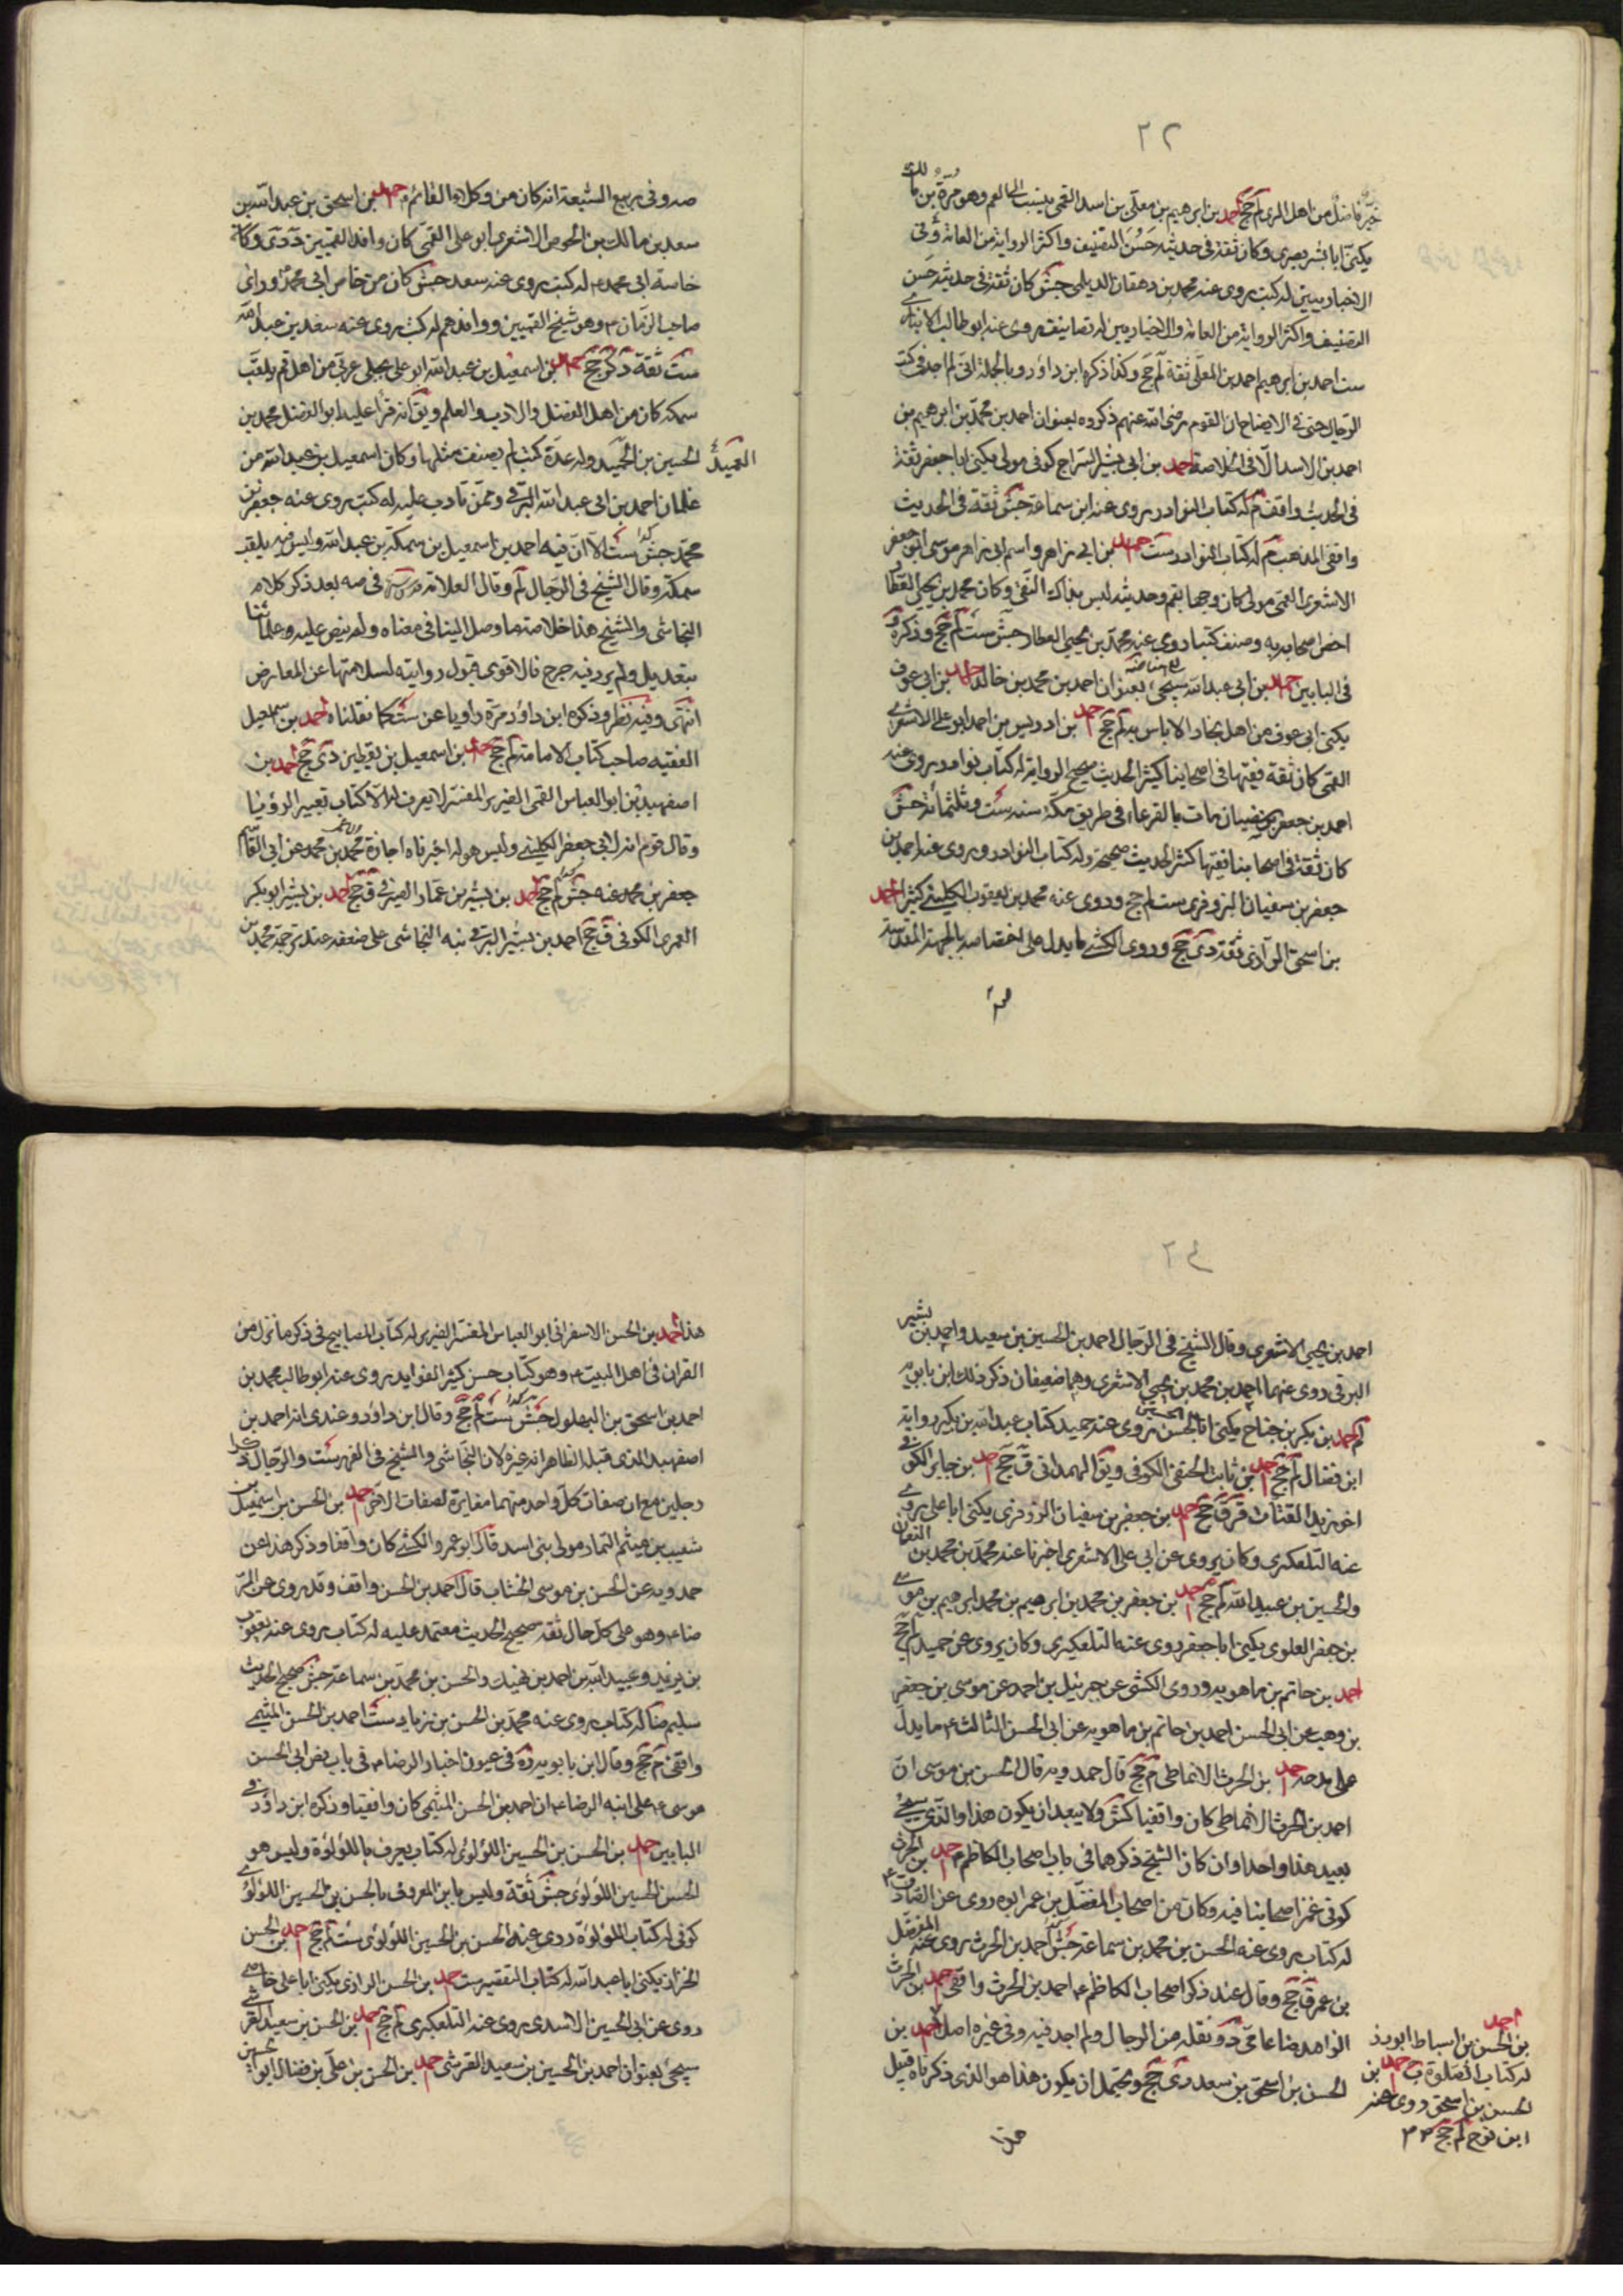 ٢٢
خير فاضل من اهل الرى لم جخ احمد بن ابرهيم بن معلى بن اسد القمى ينسب الى العم وهو مرة بن مالك
يكنى ابا بشر بصرى وكان ثقة فى حديثه حسن التصنيف واكثر الرواية من العامة وفى
الاخباريين له كتب روى عنه محمد بن وهقان الديلمى جش كان ثقة فى حديثه حسن
التصنيف واكثر الرواية من العامة والاخباريين له تصانيف روى عنه ابو طالب الانبارى
ست احمد بن ابرهيم احمد بن المعلى ثقة لم جخ وكذا ذكره ابن داود وبالجملة انى لم اجد فى كتب
الرجال حتى فى الايضاح ان القوم رضى الله عنهم ذكروه بعنوان احمد بن محمد بن ابرهيم بن
احمد بن الاسد الا فى الخلاصة احمد بن ابى بشر السراج كوفى مولى يكنى ابا جعفر ثقة
فى الحديث واقف م له كتاب النوادر روى عنه ابن سماعة جش ثقة فى الحديث
واقفى المذهب م له كتاب النوادر ست احمد بن ابى زاهر واسم ابى زاهر موسى ابو جعفر
الاشعرى القمى مولى كان وجها بقم وحديثه ليس بذاك النقى وكان محمد بن يحيى العطار
اخص اصحابه به وصنف كتبا روى عنه محمد بن يحيى العطار جش ست لم جخ وذكره د
فى البابين احمد بن ابى عبد الله سيجئ بعنوان احمد بن محمد بن خالد احمد بن ابى عوف
يكنى ابى عوف من اهل بخارا لا باس به لم جخ احمد بن ادريس بن احمد ابو على الاشعرى
القمى كان ثقة فقيها فى اصحابنا كثير الحديث صحيح الرواية له كتاب نوادر روى عنه
احمد بن جعفر بن سفيان مات بالقرعاء فى طريق مكة سنة ست وثلثمائة جش
كان ثقة فى اصحابنا فقيها كثير الحديث صحيحه وله كتاب النوادر وروى عنه احمد بن
جعفر بن سفيان البزوفرى ست لم جخ وروى عنه محمد بن يعقوب الكلينى كثيرا احمد
بن اسحق الرازى ثقة دى جخ وروى الكشى ما يدل على اختصاصه بالجهة المقدسة
صدوق فى ربيع الشيعة انه كان من وكلاء القائم ع احمد بن اسحق بن عبد الله بن
سعد بن مالك بن الاحوص الاشعرى ابو على القمى كان وافد القميين د دى وكان
خاصة ابى محمد ع له كتب روى عنه سعد جش كان من خاص ابى محمد ع وراى
صاحب الزمان ع وهو شيخ القميين ووافدهم له كتب روى عنه سعد بن عبد الله
ست ثقة د كر جخ احمد بن اسمعيل بن عبد الله ابو على بجلى عربى من اهل قم يلقب
سمكة كان من اهل الفضل والادب والعلم ويق انه قرأ عليه ابو الفضل محمد بن
الحسين بن العميد وله عدة كتب لم يصنف مثلها وكان اسمعيل بن عبد الله من
العميد
غلمان احمد بن ابى عبد الله البرقى وممن تادب عليه له كتب روى عنه جعفر بن
محمد جش ست الا ان فيه احمد بن اسمعيل بن سمكة بن عبد الله وليس فيه يلقب
سمكة وقال الشيخ فى الرجال لم وقال العلامة فى صه بعد ذكر كلام
النجاشى والشيخ هذا خلاصة ما وصل الينا فى معناه ولم ينص عليه وعلمائنا
بتعديل ولم يرد فيه جرح فالاقوى قبول روايته لسلامتها عن المعارض
انتهى وفيه نظر وذكره ابن داود مرة راويا عن ست كما نقلناه احمد بن اسمعيل
الفقيه صاحب كتاب الامامة لم جخ احمد بن اسمعيل بن يقطين دى جخ احمد بن
اصفهبذ بن ابو العباس القمى الضرير المفسر لا يعرف له الا كتاب تعبير الرؤيا
وقال قوم انه لابى جعفر الكلينى وليس هو له اخبرناه اجازة محمد بن محمد عن ابى القاسم
جعفر بن محمد عنه جش لم جخ احمد بن بشير بن عمار الصيرفى ق جخ احمد بن بشير ابو بكر
العمرى الكوفى ق جخ احمد بن بشير البرقى نبه النجاشى على ضعفه عند ترجمة محمد بن
٢٤
احمد بن يحيى الاشعرى وقال الشيخ فى الرجال احمد بن الحسين بن سعيد واحمد بن بشير
البرقى روى عنهما احمد بن محمد بن يحيى الاشعرى وهما ضعيفان ذكر ذلك ابن بابويه
لم احمد بن بكر بن جناح يكنى ابا الحسن روى عنه حميد كتاب عبد الله بن بكير رواية
ابن فضال لم جخ احمد بن ثابت الحنفى الكوفى ويق الهمدانى ق جخ احمد بن جابر الكوفى
اخو زيد القتات قر ق جخ احمد بن جعفر بن سفيان البزوفرى يكنى ابا على روى
عنه التلعكبرى وكان يروى عن ابى على الاشعرى اخبرنا عنه محمد بن محمد بن النعمان
والحسين بن عبيد الله لم جخ احمد بن جعفر بن محمد بن ابرهيم بن محمد ابرهيم بن موسى
بن جعفر العلوى يكنى ابا جعفر روى عنه التلعكبرى وكان يروى عن حميد لم جخ
احمد بن حاتم بن ماهويه وروى الكشى عن جبرئيل بن احمد عن موسى بن جعفر
بن وهب عن ابى الحسن احمد بن حاتم بن ماهويه عن ابى الحسن الثالث ع ما يدل
على مدحه احمد بن الحرث الانماطى م جخ قال حمدويه قال الحسن بن موسى ان
احمد بن الحرث الانماطى كان واقفيا كش ولا يبعد ان يكون هذا والذى سيجئ
بعيد هذا واحدا وان كان الشيخ ذكرهما فى باب اصحاب الكاظم ع احمد بن الحرث
كوفى غمز اصحابنا فيه وكان من اصحاب المفضل بن عمر ابوه روى عن الصادق ع
له كتاب روى عنه الحسن بن محمد بن سماعة جش احمد بن الحرث روى عنه المفضل
بن عمر ق جخ وقال عند ذكر اصحاب الكاظم ع احمد بن الحرث واقفى احمد بن الحرث
الزاهد ضا عامى د ونقله من الرجال ولم اجد فيه وفى غيره اصل احمد بن
الحسن بن اسحق بن سعد دى جخ ويحتمل ان يكون هذا هو الذى ذكرناه قبيل
هذا
احمد
بن الحسن بن اسباط ابو ذر
له كتاب الصلوة ب احمد بن
الحسن بن اسحق روى عنه
ابن نوح لم جخ
هذا احمد بن الحسن الاسفرانى ابو العباس المفسر الضرير له كتاب المصابيح فى ذكر ما نزل من
القران فى اهل البيت ع وهو كتاب حسن كثير الفوايد روى عنه ابو طالب محمد بن
احمد بن اسحق بن البهلول جش ست لم جخ وقال ابن داود وعندى انه احمد بن
اصفهبد الذى قبله الظاهر انه غيره لان النجاشى والشيخ فى الفهرست والرجال ذكرا
رجلين مع ان صفات كل واحد منهما مغايرة لصفات الاخر احمد بن الحسن بن اسمعيل بن
شعيب بن ميثم التمار مولى بنى اسد قال ابو عمرو الكشى كان واقفا وذكر هذا عن
حمدويه عن الحسن بن موسى الخشاب قال احمد بن الحسن واقف وقد روى عن الر
ضا ع وهو على كل حال ثقة صحيح الحديث معتمد عليه له كتاب روى عنه يعقوب
بن يزيد وعبيد الله بن احمد بن نهيك والحسن بن محمد بن سماعة جش صحيح الحديث
سليم ضا له كتاب روى عنه محمد بن الحسن بن زياد ست احمد بن الحسن الميثمى
واقفى م جخ وقال ابن بابويه ره فى عيون اخبار الرضا ع فى باب نص ابى الحسن
موسى ع على ابنه الرضا ع ان احمد بن الحسن الميثمى كان واقفيا وذكره ابن داود فى
البابين احمد بن الحسن بن الحسين اللؤلؤى له كتاب يعرف باللؤلؤة وليس هو
الحسن الحسين اللؤلؤى جش ثقة وليس بابن المعروف بالحسن بن الحسين اللؤلؤى
كوفى له كتاب اللؤلؤة روى عنه الحسن بن الحسين اللؤلؤى ست لم جخ احمد بن الحسن
الخزاز يكنى ابا عبد الله له كتاب التفسير ست احمد بن الحسن الرازى يكنى ابا على خاصى
روى عن ابى الحسين الاسدى روى عنه التلعكبرى لم جخ احمد بن الحسن بن سعيد القرشى
سيجئ بعنوان احمد بن الحسين بن سعيد القرشى احمد بن الحسن بن على بن فضال ابو